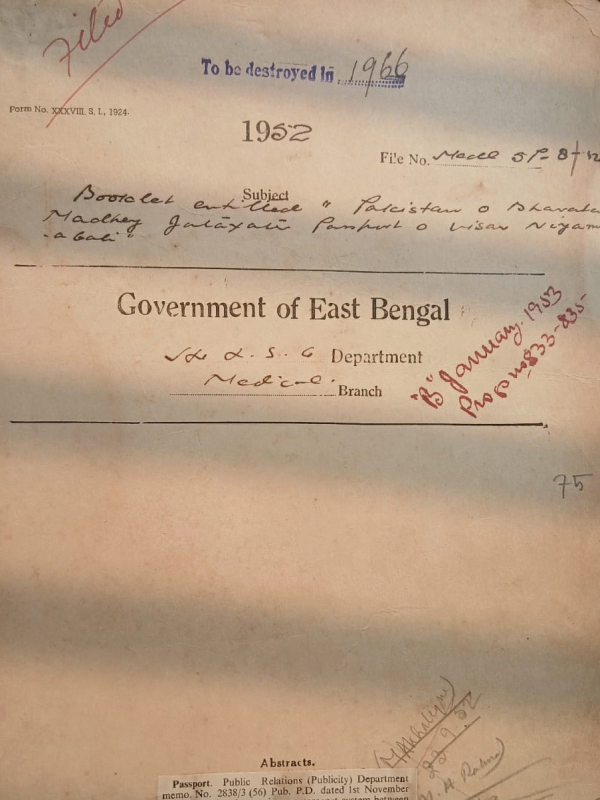 Filed
To be destroyed in 1966
Form No. XXXVIII. S. I., 1924.
1952
File No. Medl 5P-8/52
Subject
Booklet entitled " Pakistan o Bharater
Madhey Jatāyatēr Passport o visar Niyam
-abali"
Government of East Bengal
H & L. S. G Department
Medical Branch
"B" January. 1953
Progs nos 833-835-
75
22.9.52
Abstracts.
Passport. Public Relations (Publicity) Department
memo. No. 2838/3 (56) Pub. P.D. dated 1st November
system between